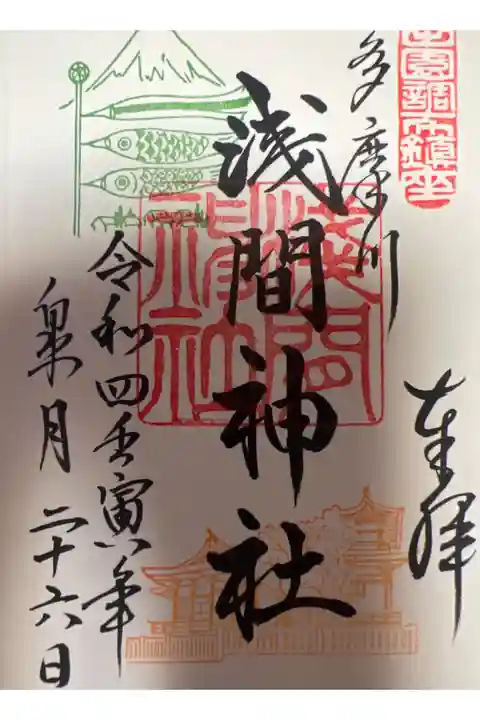 田園調布鎮坐
奉拝
多摩川
浅間神社
淺間
神社
令和四壬寅年
皐月二十六日